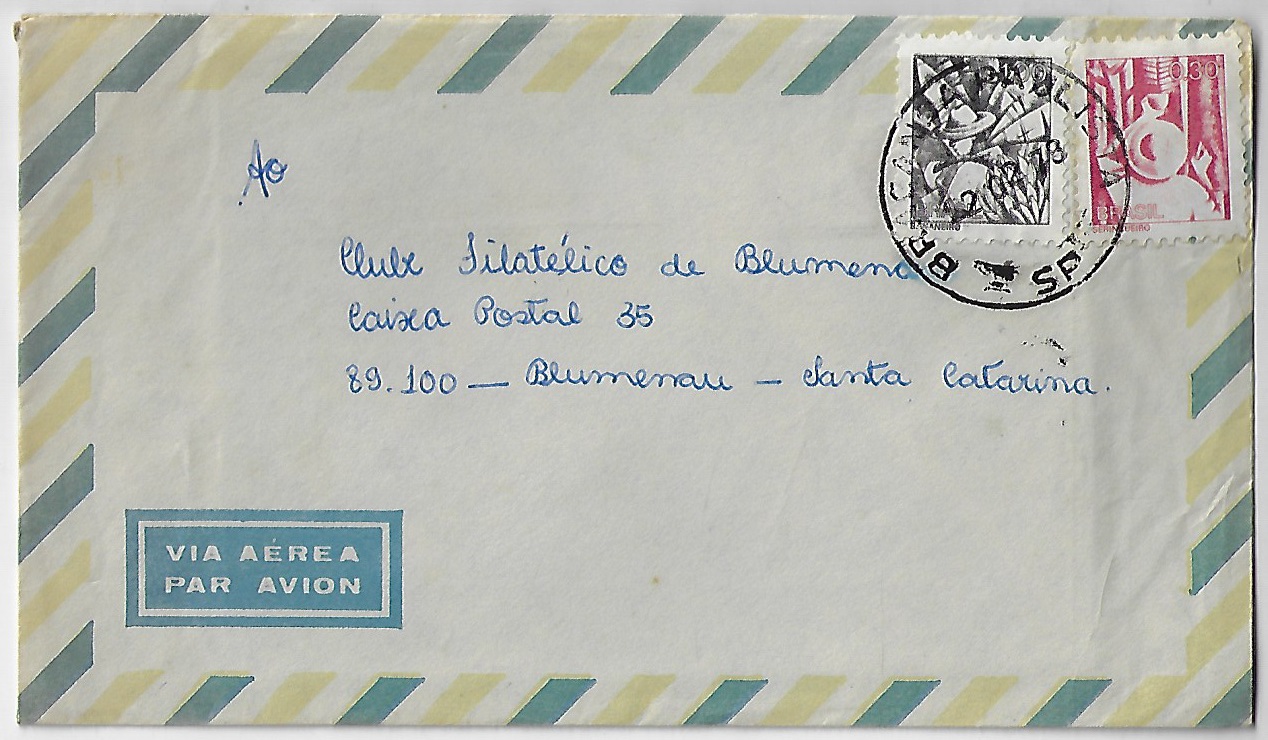 0,30
BRASIL
SERINGUEIRO
BANANEIRO
BRAGANÇA PAULISTA
SP
Ao
Clube Filatélico de Blumenau
Caixa Postal 35
89.100 — Blumenau — Santa Catarina.
VIA AÉREA
PAR AVION